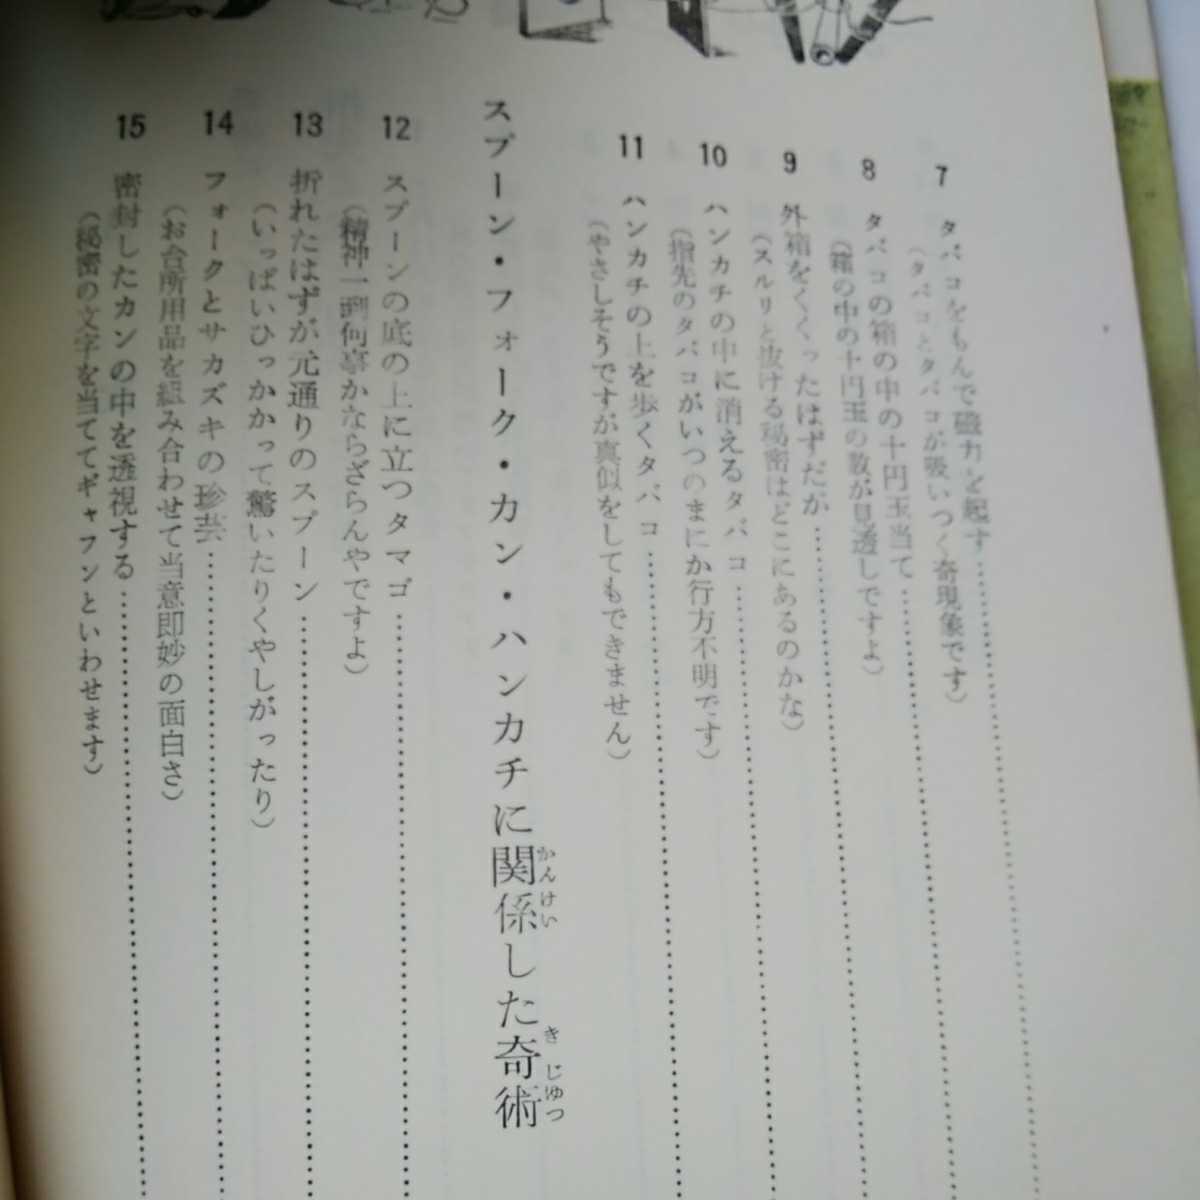 7 タバコをもんで磁力を起す
(タバコとタバコが吸いつく奇現象です)
8 タバコの箱の中の十円玉当て
(箱の中の十円玉の数が見透しですよ)
9 外箱をくくったはずだが
(スルリと抜ける秘密はどこにあるのかな)
10 ハンカチの中に消えるタバコ
(指先のタバコがいつのまにか行方不明です)
11 ハンカチの上を歩くタバコ
(やさしそうですが真似をしてもできません)
スプーン・フォーク・カン・ハンカチに関係した奇術
かんけい
きじゆつ
12 スプーンの底の上に立つタマゴ
(精神一到何事かならざらんやですよ)
13 折れたはずが元通りのスプーン
(いっぱいひっかかって驚いたりくやしがったり)
14 フォークとサカズキの珍芸
(お台所用品を組み合わせて当意即妙の面白さ)
15 密封したカンの中を透視する
(秘密の文字を当ててギャフンといわせます)